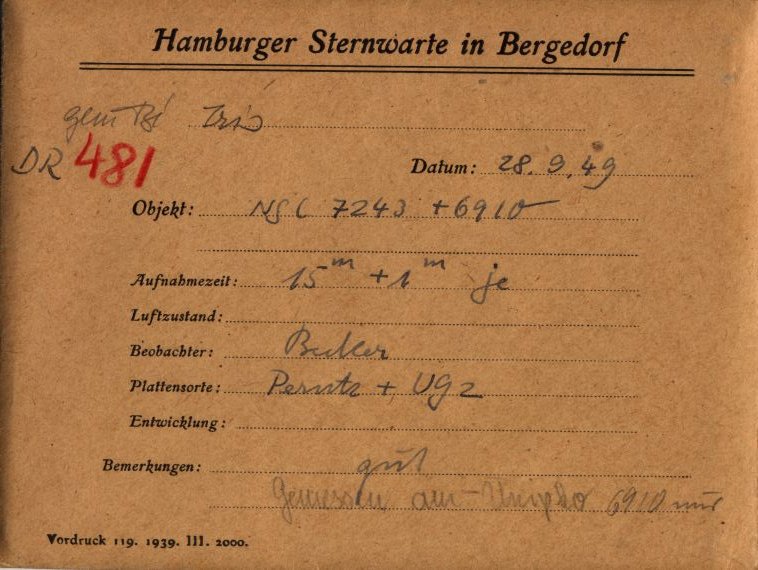 Hamburger Sternwarte in Bergedorf
gem Iris
DR 481
Datum: 28.9.49
Objekt: NGC 7243 + 6910
Aufnahmezeit: 15m + 1m je
Luftzustand:
Beobachter: Becker
Plattensorte: Perutz + UG2
Entwicklung:
Bemerkungen: gut
Gemessen am 6910 nur
Vordruck 119. 1939. III. 2000.